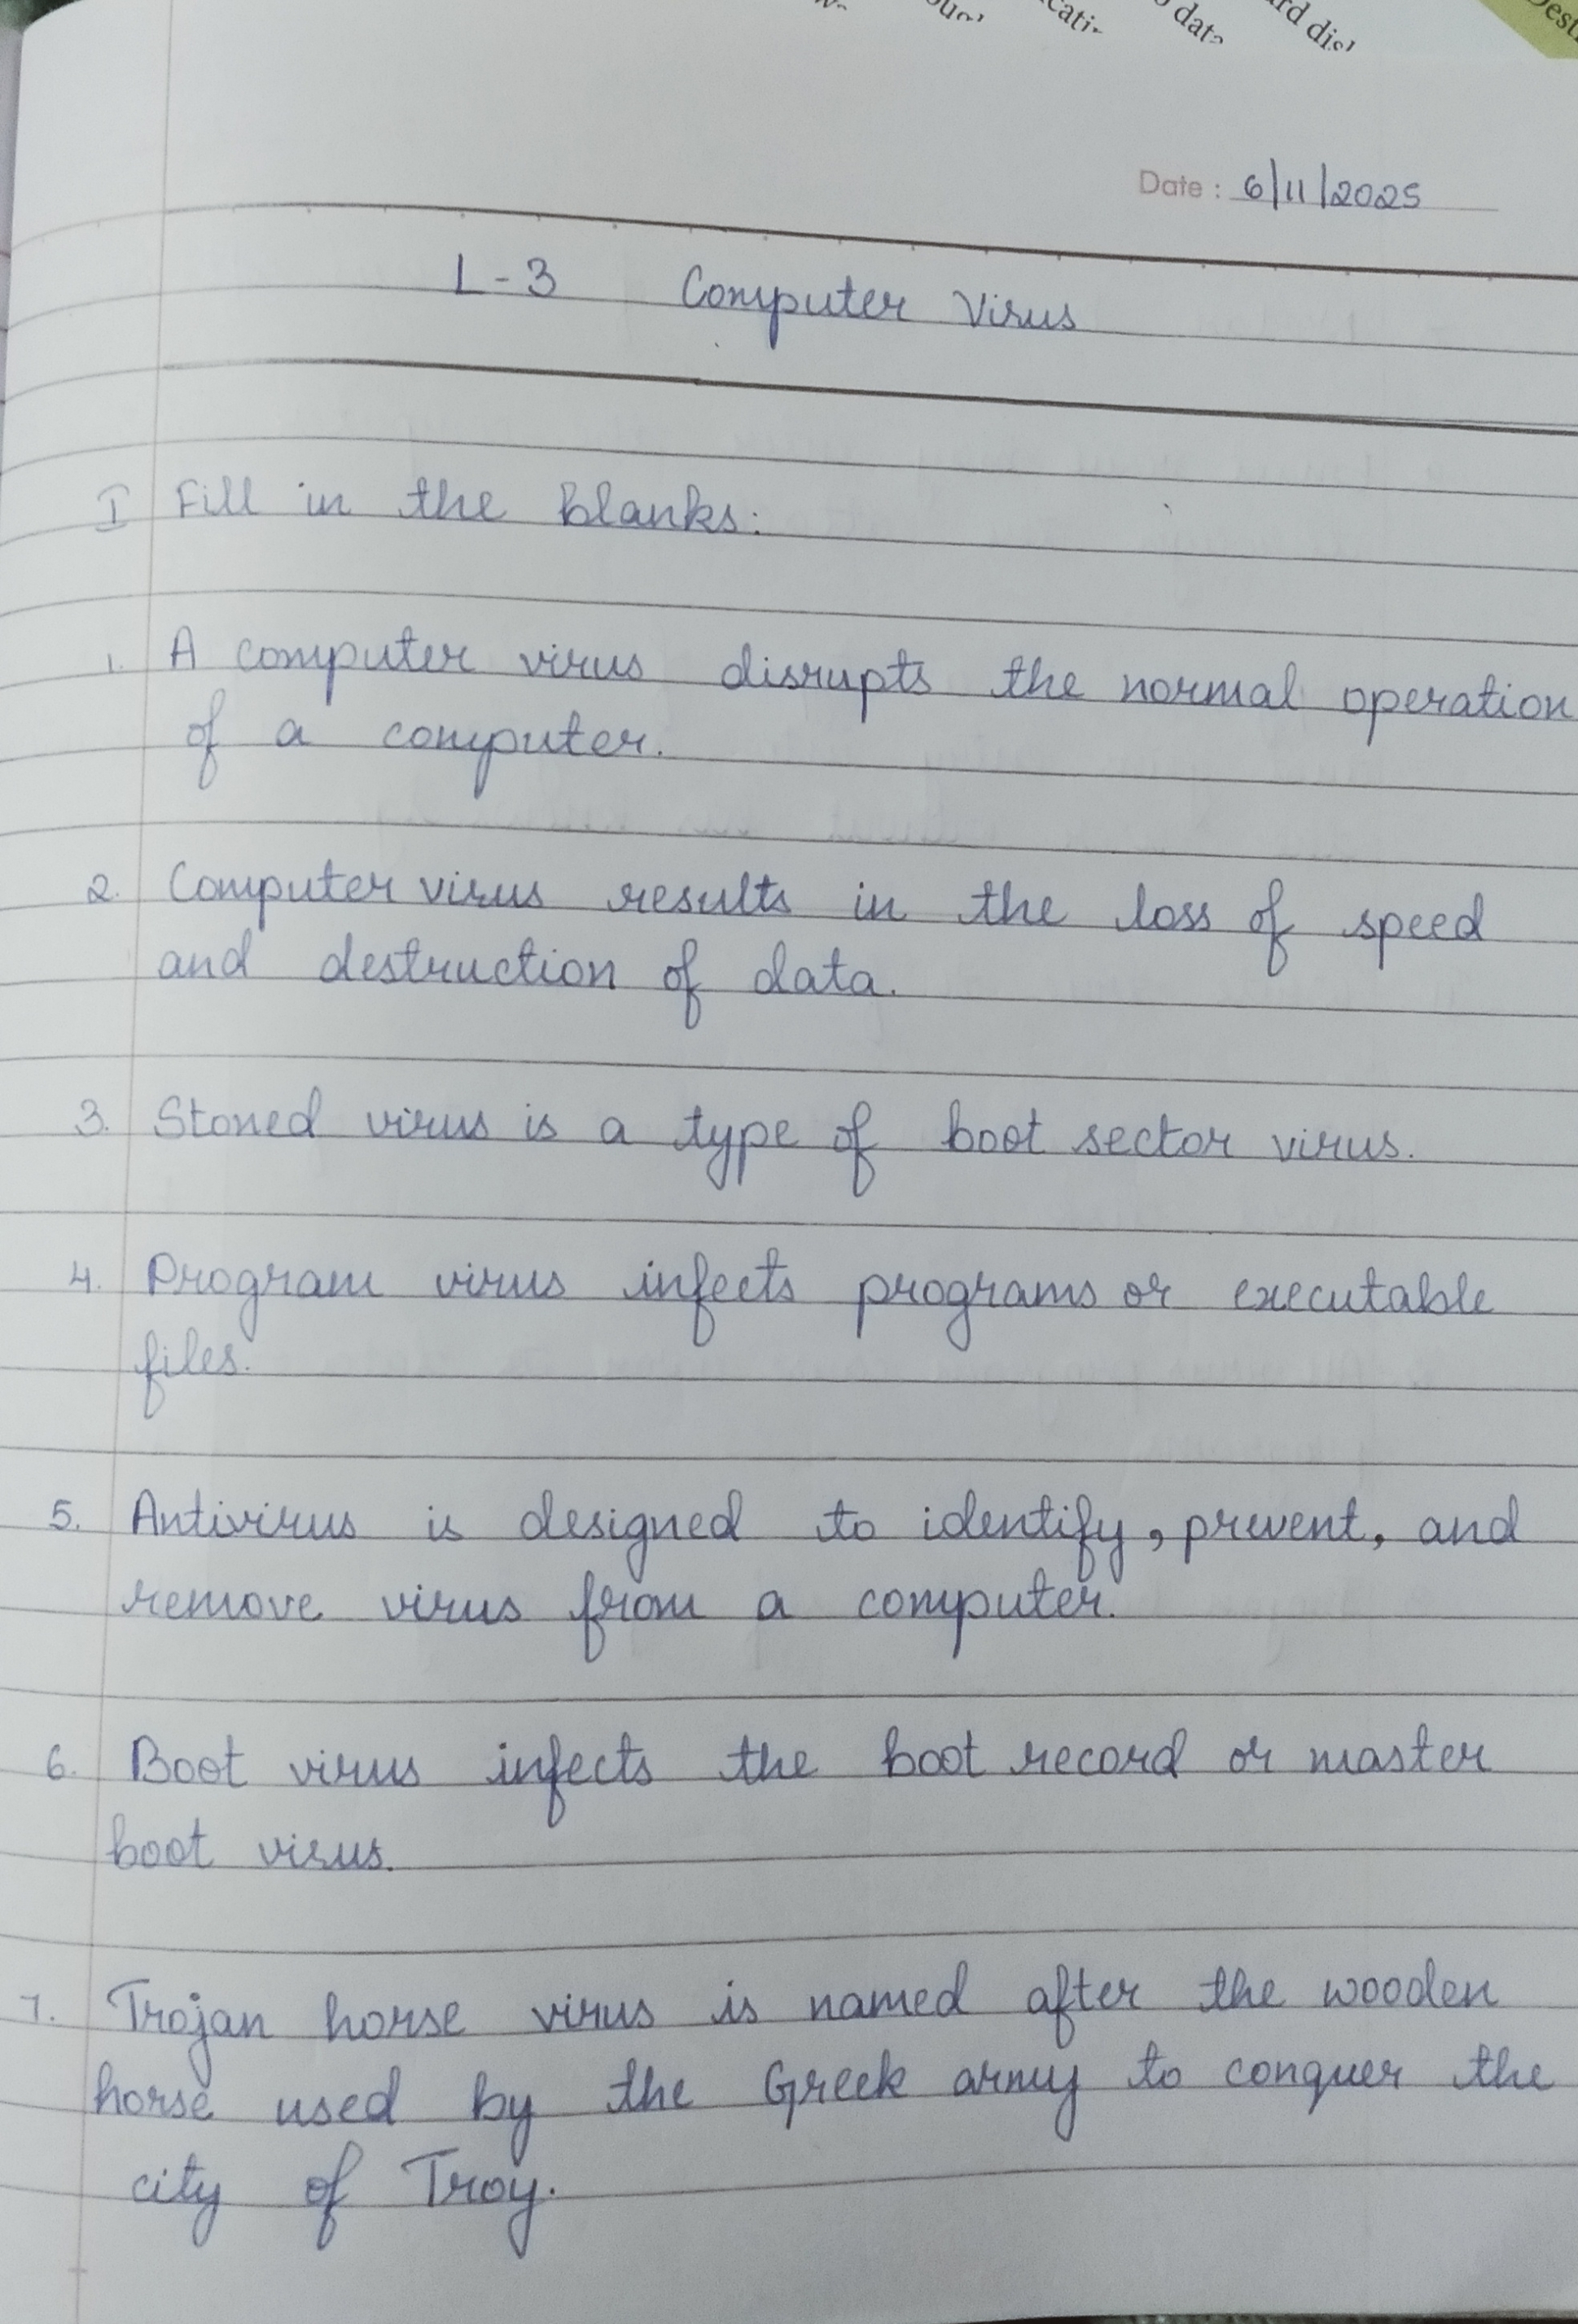 Date : 6/11/2025
L-3 Computer Virus
I Fill in the blanks:
1. A computer virus disrupts the normal operation
of a computer.
2. Computer virus results in the loss of speed
and destruction of data.
3. Stoned virus is a type of boot sector virus.
4. Program virus infects programs or executable
files.
5. Antivirus is designed to identify, prevent, and
remove virus from a computer.
6. Boot virus infects the boot record or master
boot virus.
7. Trojan horse virus is named after the wooden
horse used by the Greek army to conquer the
city of Troy.